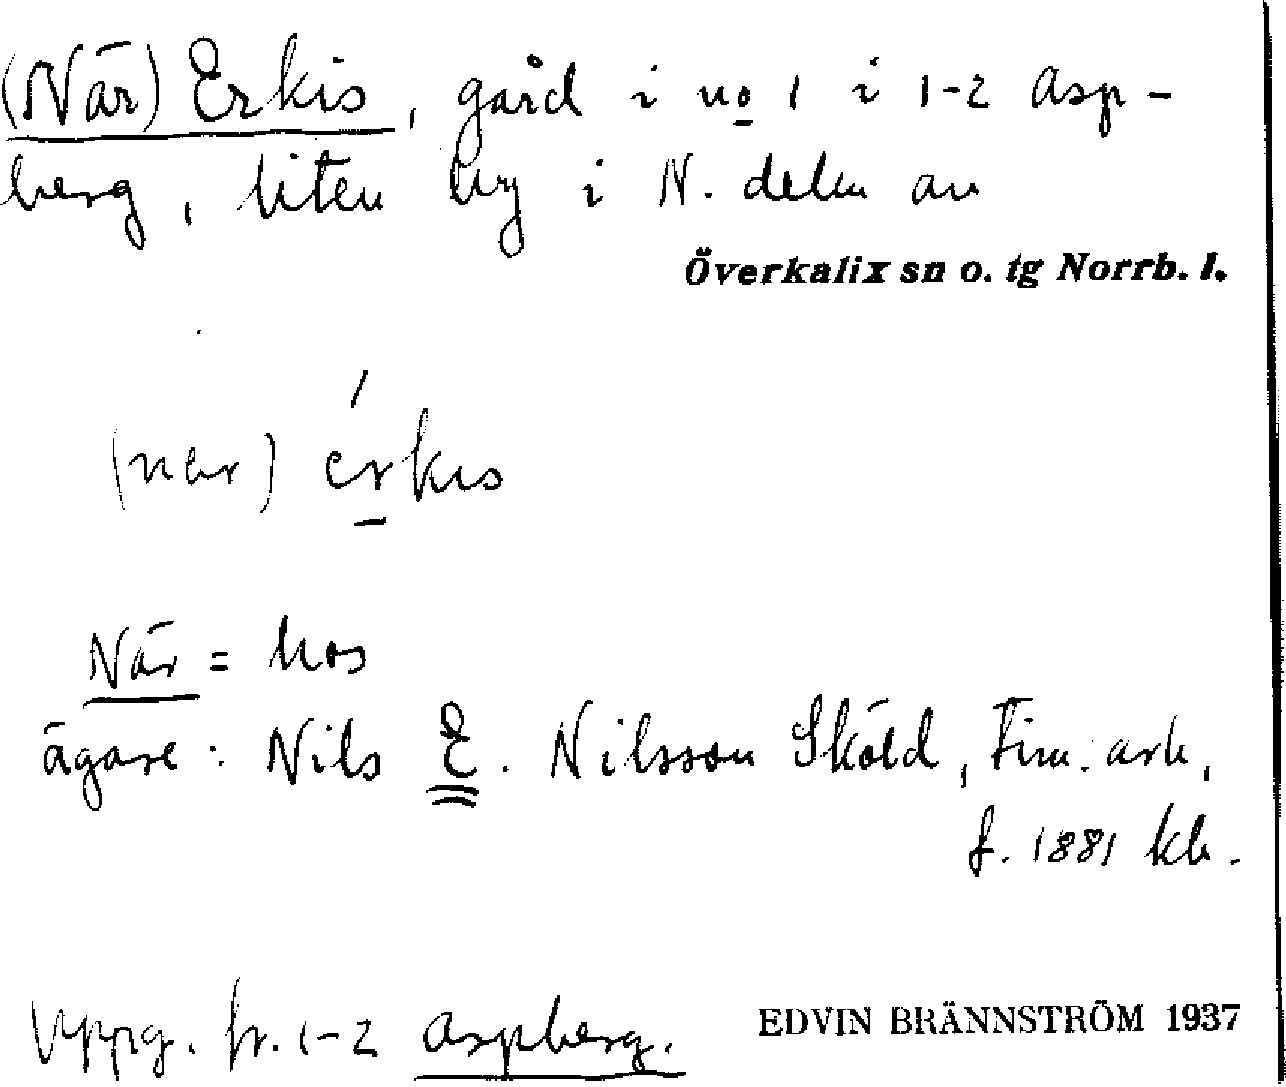 (När) Erkis, gård i no 1 i 1-2 Asp-
berg, liten by i N. delen av
Överkalix sn o. tg Norrb. l.
(nær) érkis
När = hos
ägare: Nils E. Nilsson Sköld, Tim. arb,
f. 1881 kb.
Uppg. fr. 1-2 Aspberg.
EDVIN BRÄNNSTRÖM 1937